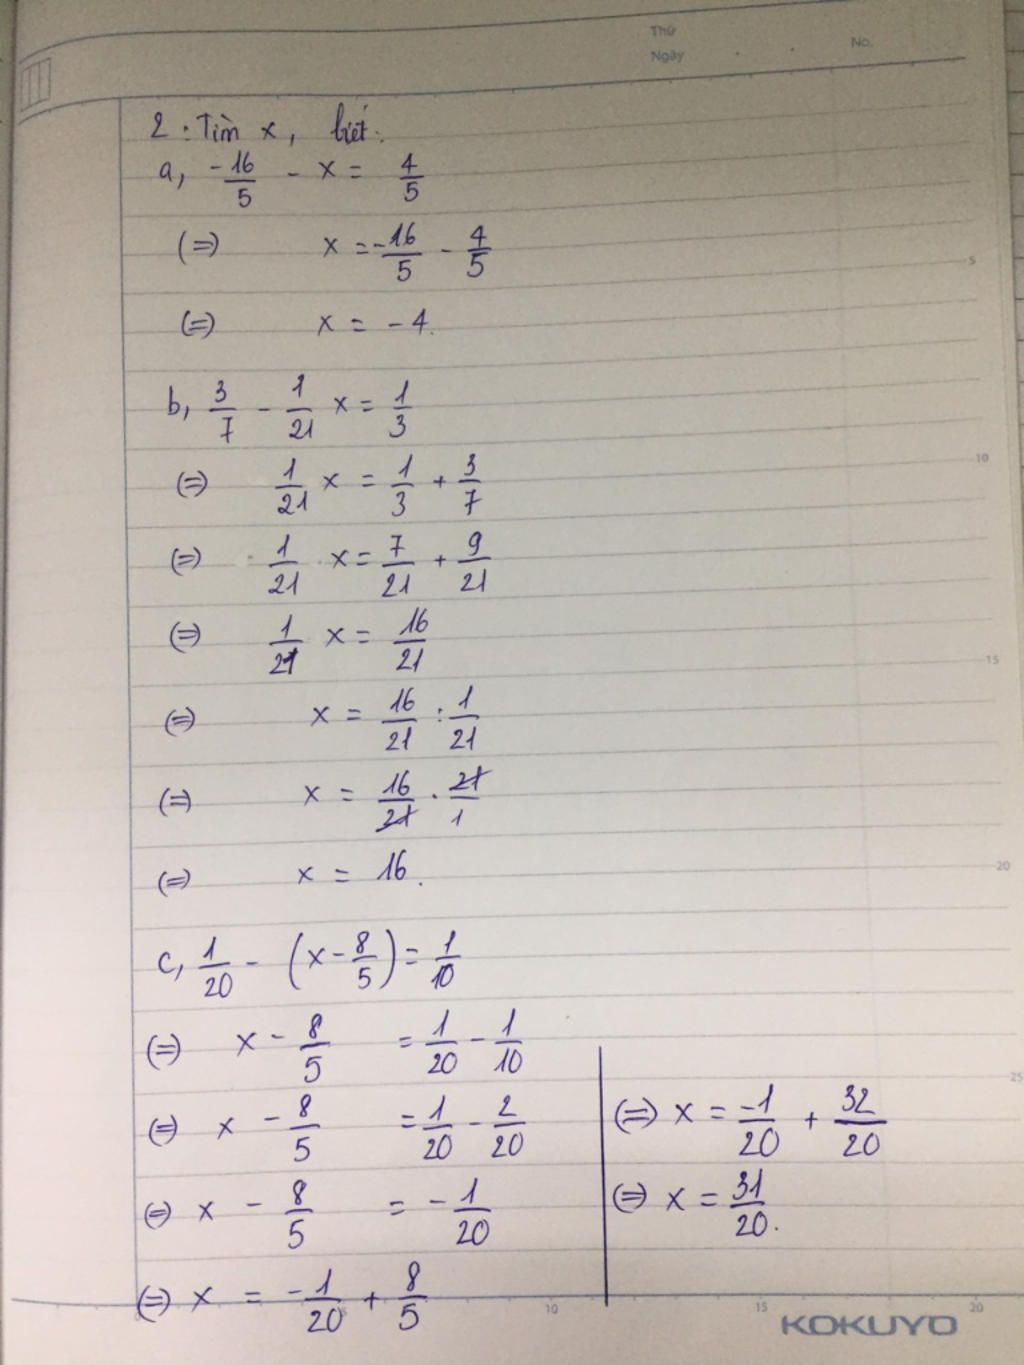 Thứ
Ngày
No.
2 : Tìm x, biết:
a, -16/5 - x = 4/5
(=) x = -16/5 - 4/5
(=) x = -4.
5
b, 3/7 - 1/21 x = 1/3
(=) 1/21 x = 1/3 + 3/7
10
(=) 1/21 x = 7/21 + 9/21
(=) 1/21 x = 16/21
15
(=) x = 16/21 : 1/21
(=) x = 16/21 . 21/1
(=) x = 16.
20
c, 1/20 - (x - 8/5) = 1/10
(=) x - 8/5 = 1/20 - 1/10
25
(=) x - 8/5 = 1/20 - 2/20
(=) x - 8/5 = -1/20
(=) x = -1/20 + 8/5
(=) x = -1/20 + 32/20
(=) x = 31/20.
5 10 15 20
KOKUYO